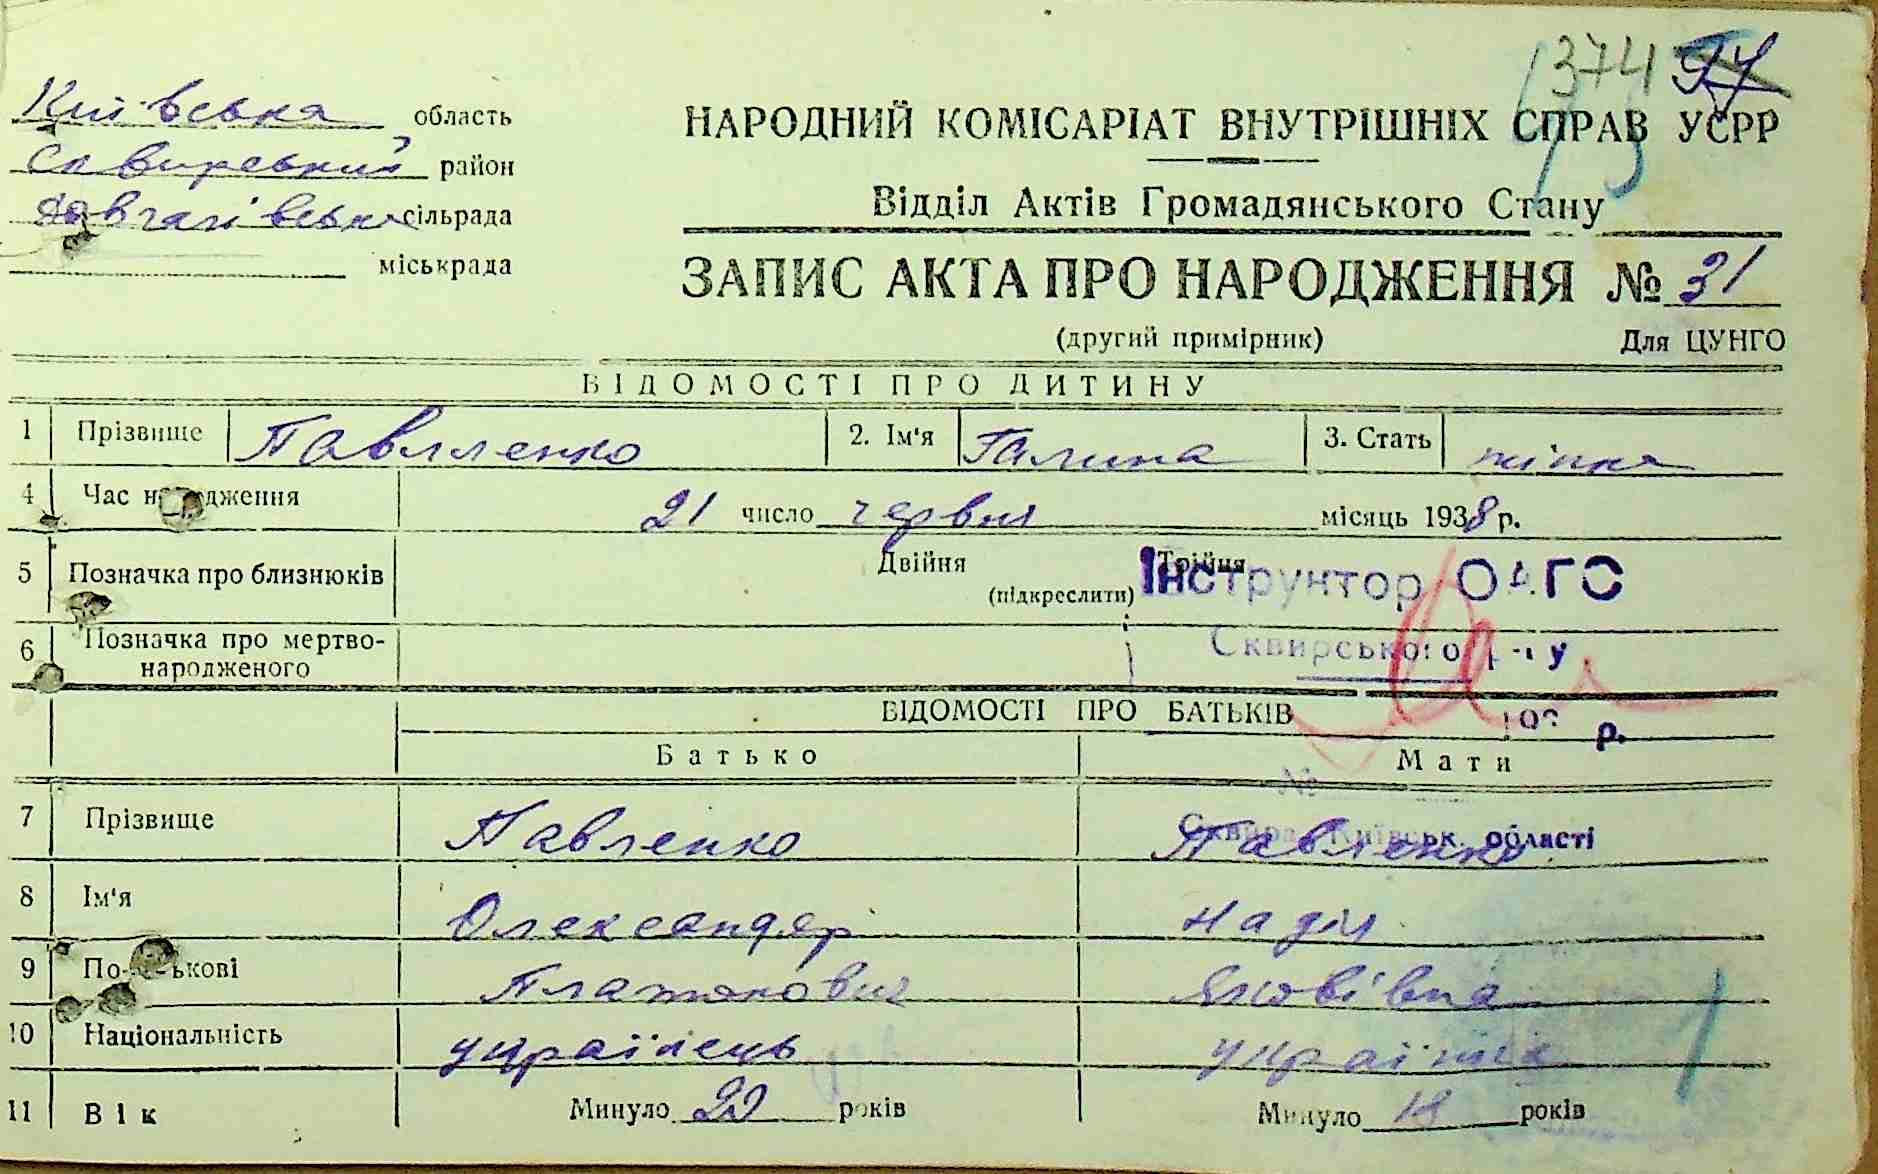 374
Київська область
Сквирський район
Довгалівська сільрада
міськрада
НАРОДНИЙ КОМІСАРІАТ ВНУТРІШНІХ СПРАВ УСРР
Відділ Актів Громадянського Стану
ЗАПИС АКТА ПРО НАРОДЖЕННЯ № 31
(другий примірник) Для ЦУНГО
ВІДОМОСТІ ПРО ДИТИНУ
1 Прізвище Павленко 2. Ім'я Галина 3. Стать жінка
4 Час народження 21 число червня місяць 1938 р.
5 Позначка про близнюків Двійня Трійня
(підкреслити)
Інструктор ОАГС
6 Позначка про мертво-
народженого
Сквирського р-ну
ВІДОМОСТІ ПРО БАТЬКІВ
193 р.
Батько Мати
№
7 Прізвище Павленко Павленко
Сквира Київськ. області
8 Ім'я Олександр Надія
9 По-батькові Платонович Яковівна
10 Національність українець українка
11 Вік Минуло років Минуло 18 років